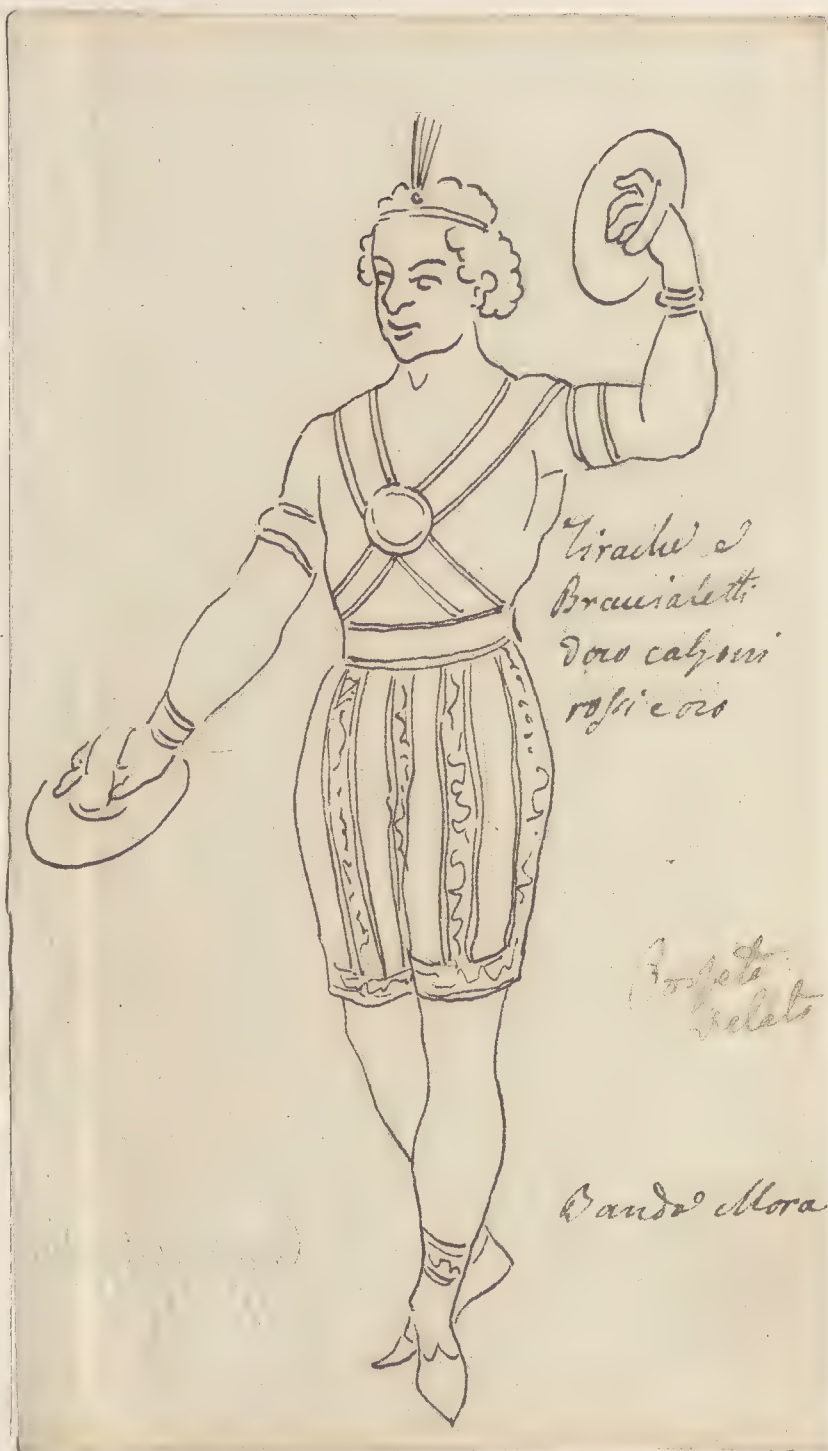 Tirache e
Braccialetti
doro calzoni
rossi e oro
Velato
Banda Mora